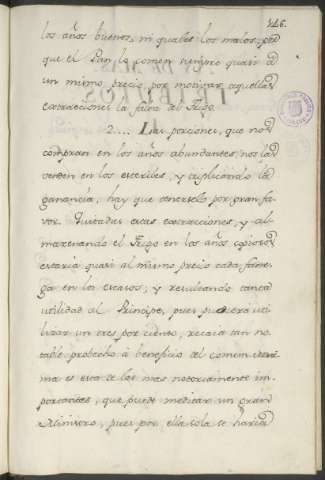 146.
los años buenos, ni quales los malos, por
que el Pan lo comen siempre quasi a
un mismo precio por motivar aquellas
extracciones la falta del Trigo.
2.... Las porciones, que nos
compran en los años abundantes, nos las
venden en los esteriles, y triplicando la
ganancia, hay que tenerselo por gran fa-
vor. Quitadas estas extracciones, y al-
macenando el Trigo en los años copiosos
estaria quasi al mismo precio cada fane-
ga en los escasos, y resultando tanta
utilidad al Principe, pues pudiera uti-
lizar un tres por ciento, recaia tan no-
table probecho à beneficio del comun
ma es esta de las mas notoriamente im-
portantes, que puede meditar un gran
Ministro, pues por ella sola se haria